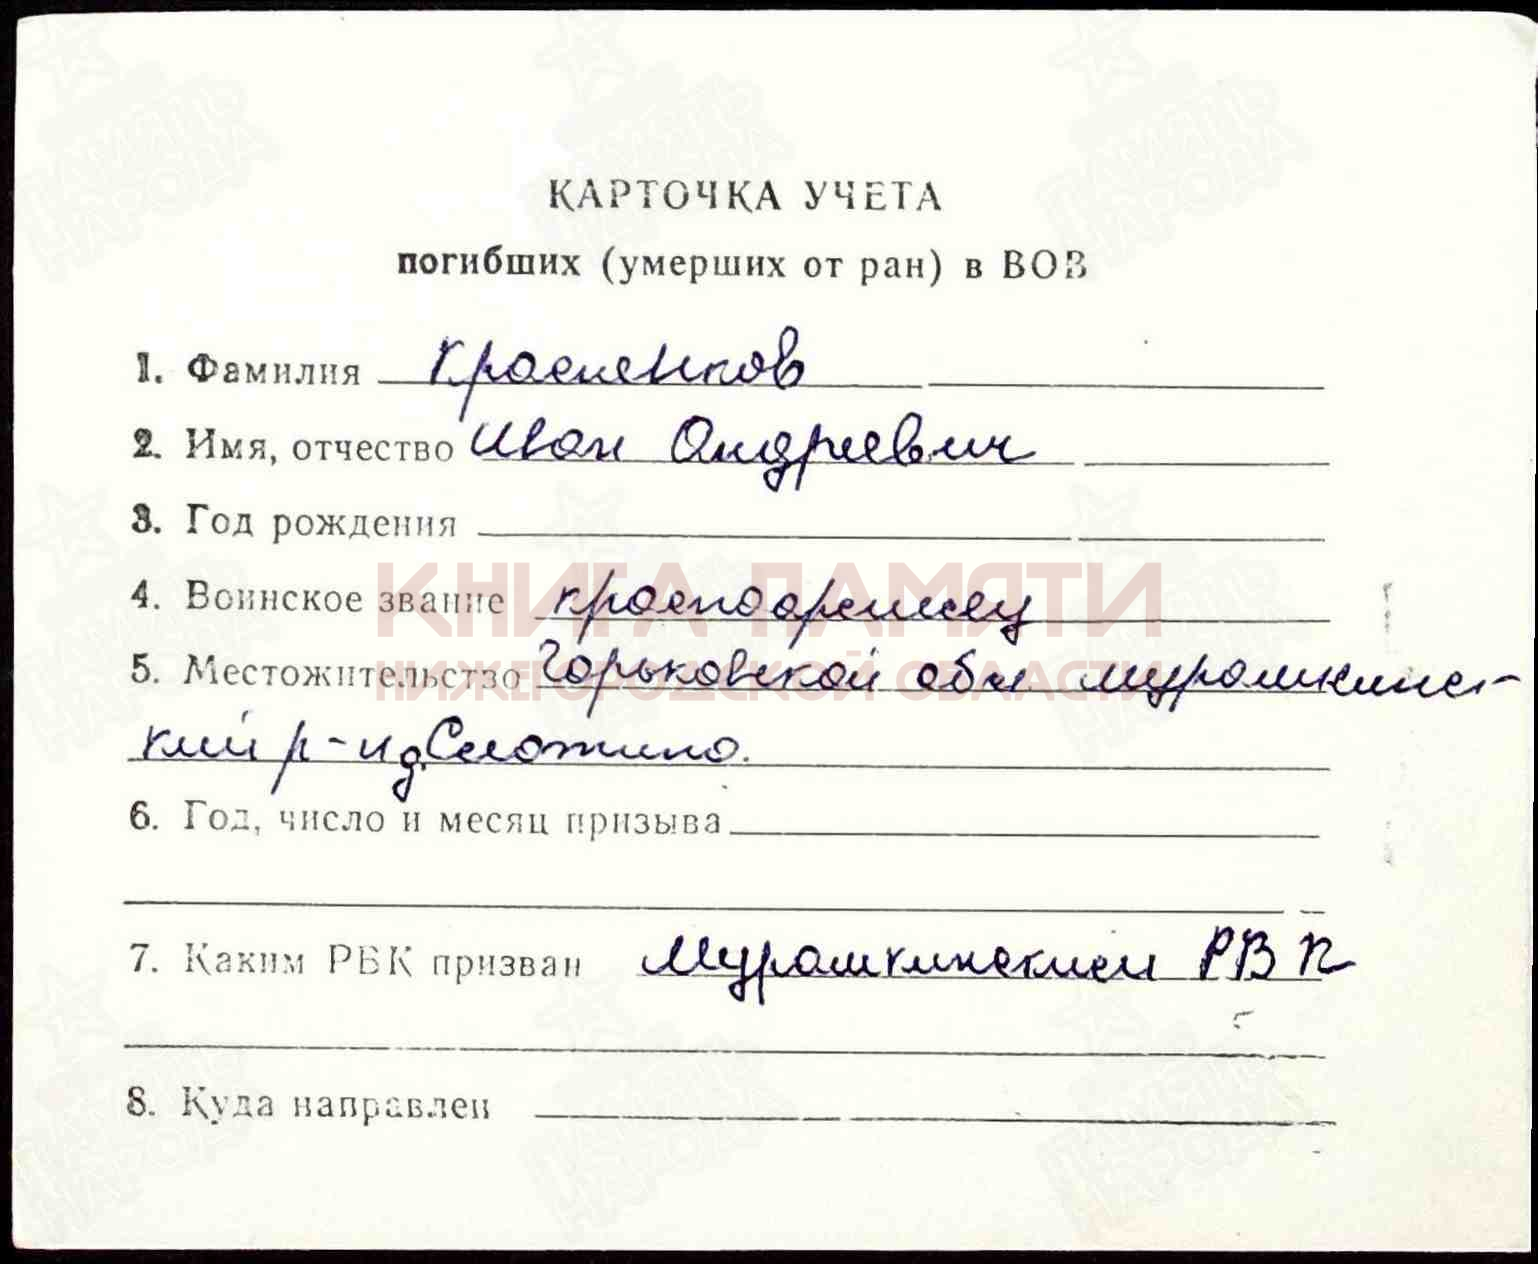 КАРТОЧКА УЧЕТА
погибших (умерших от ран) в ВОВ
1. Фамилия Красненков
2. Имя, отчество Иван Андреевич
3. Год рождения
4. Воинское звание красноармеец
КНИГА ПАМЯТИ
НИЖЕГОРОДСКОЙ ОБЛАСТИ
5. Местожительство Горьковской обл Мурашкинс-
кий р-н д.
6. Год, число и месяц призыва
7. Каким РВК призван Мурашкинским РВК
8. Куда направлен